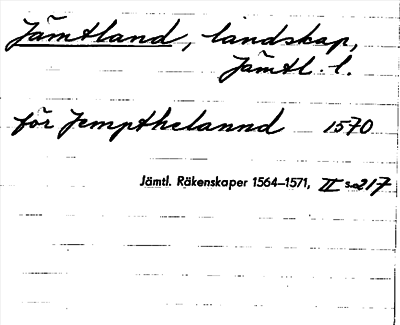 Jämtland, landskap,
Jämtl. l.
för Jempthelannd 1570
Jämtl. Räkenskaper 1564–1571, II s. 217